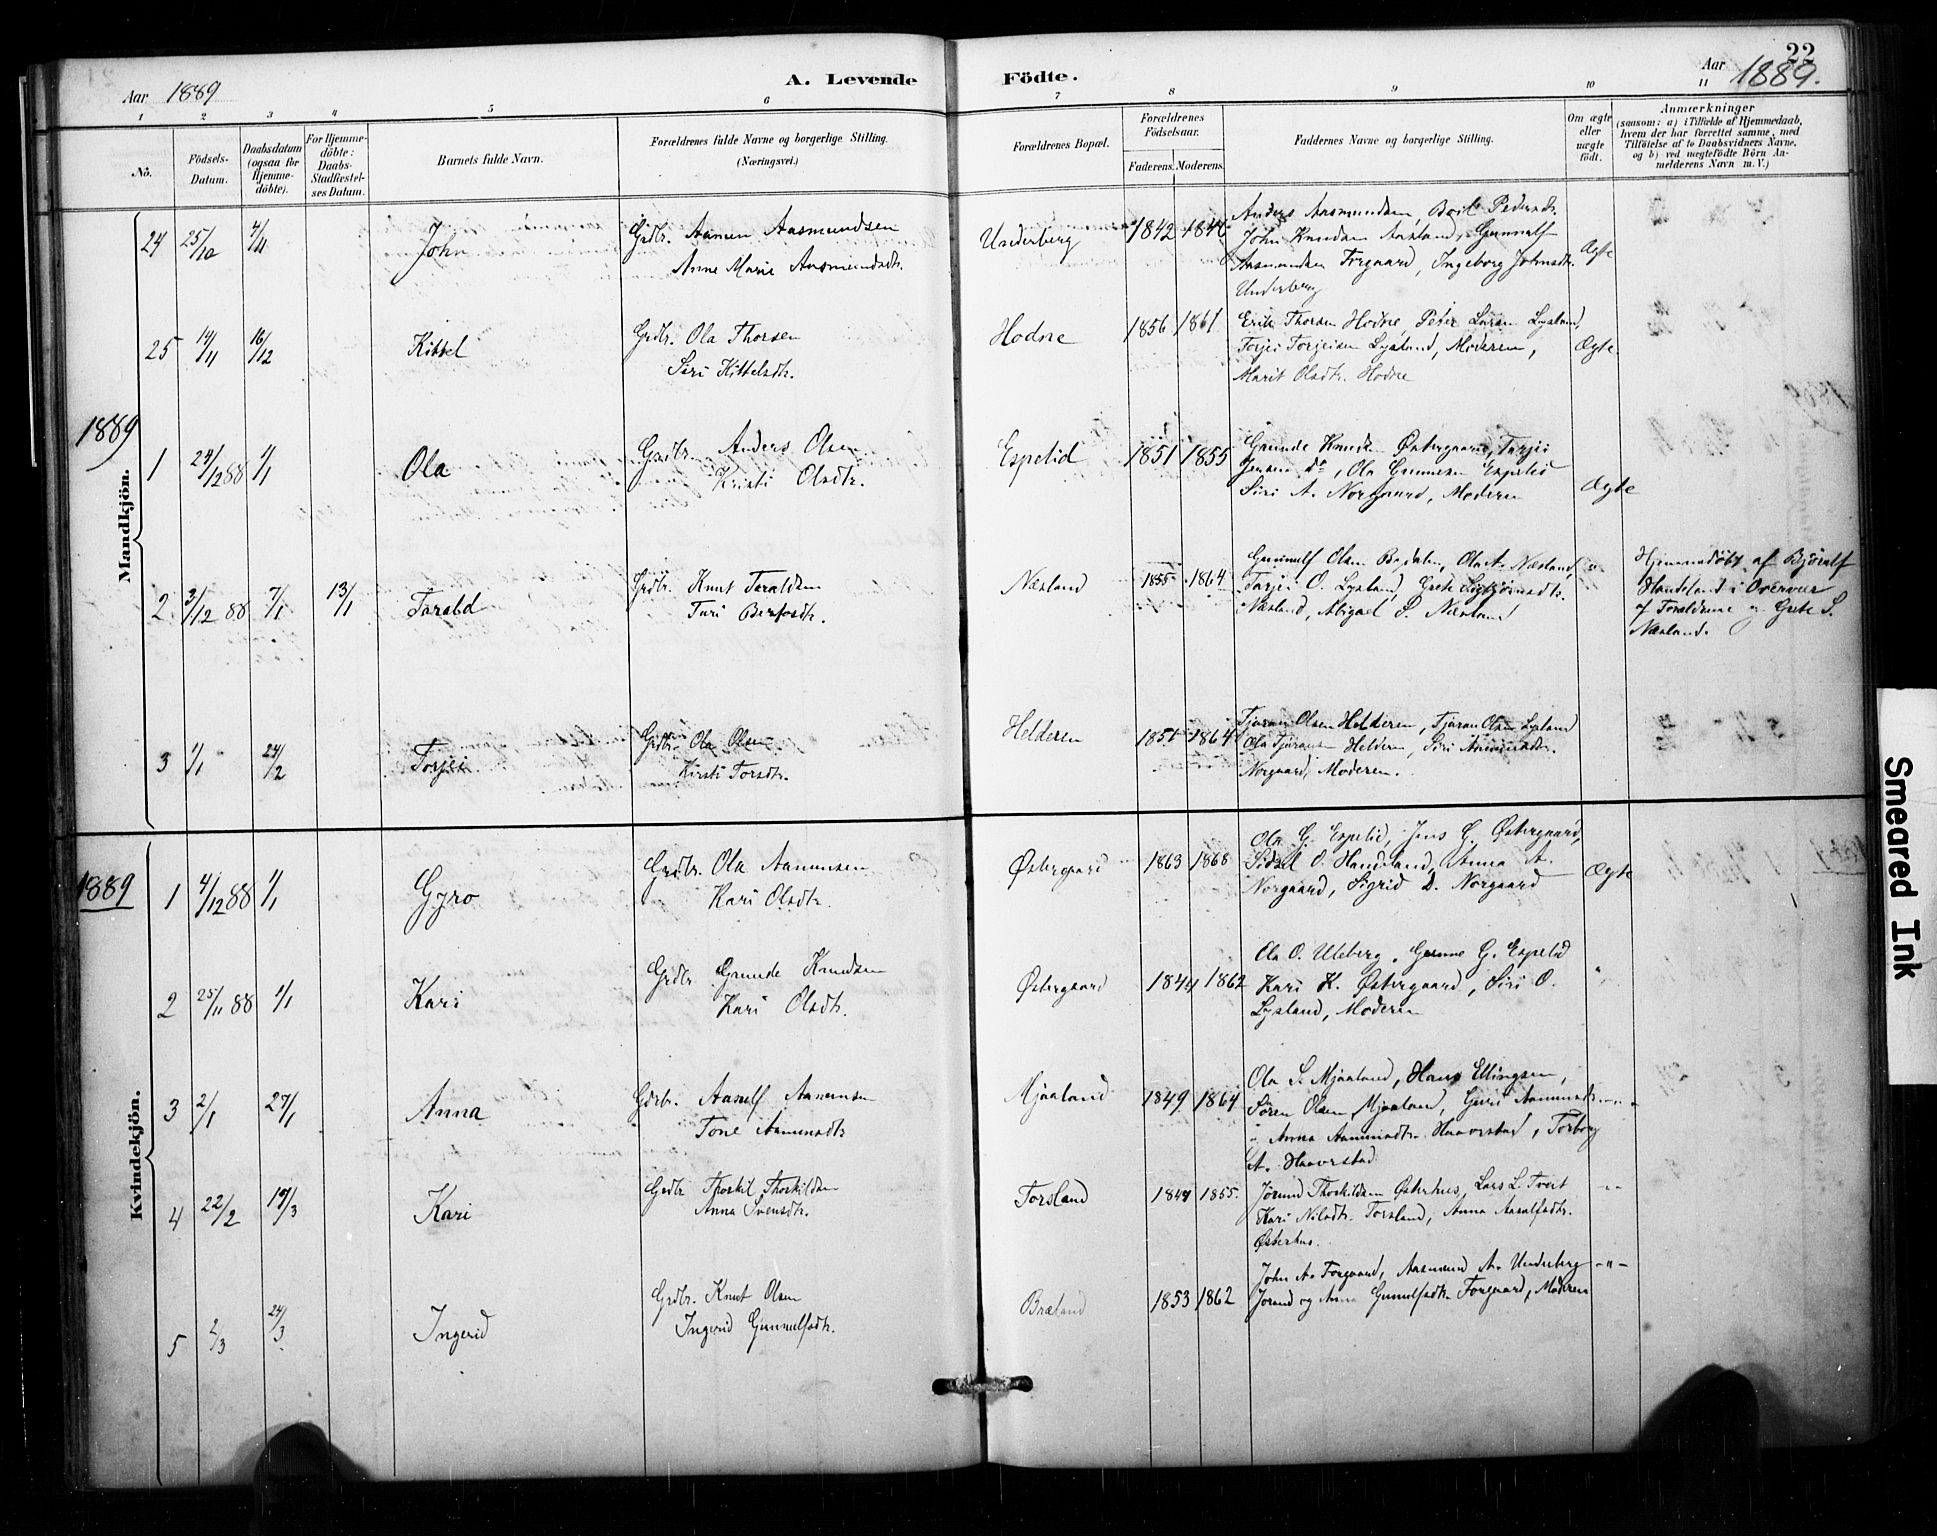 22
Aar 1889
A. Levende Födte.
Aar 1889.
1 2 3 4 5 6 7 8 9 10 11
No.
Födsels-
Datum.
Daabsdatum
(ogsaa for
Hjemme-
döbte).
For Hjemme-
döbte:
Daabs-
Stadfæstel-
ses Datum.
Barnets fulde Navn.
Forældrenes fulde Navne og borgerlige Stilling.
(Næringsvei.)
Forældrenes Bopæl.
Forældrenes
Födselsaar.
Faderens. Moderens.
Faddernes Navne og borgerlige Stilling.
Om ægte
eller
uægte
födt.
Anmærkninger
(saasom: a) i Tilfælde af Hjemmedaab,
hvem der har forrettet samme, med
Tilföielse af to Daabsvidners Navne,
og b) ved uægtefödte Börn An-
melderens Navn m. V.)
Mandkjön.
24 25/10 4/11 John
Grdbr. Aamun Aasmundsen
Anne Marie Aasmundsdtr.
Underberg 1842 1846
Anders Aasmundsen, Boil Pedersdtr.
John Knudsen Aasland, Gunnulf
Aasmundsen Forgaard, Ingeborg Johnsdtr.
Underberg
Ægte
25 14/11 16/12 Kittel
Grdbr. Ola Thorsen
Siri Kittelsdtr.
Hodne 1856 1861
Erik Thorsen Hodne, Peter Larsen Lysland,
Torjei Torjeisen Lysland, Moderen,
Marit Olsdtr. Hodne
Ægte.
1889
1 24/12 88 1/1 Ola
Grdbr. Anders Olsen
Kristi Olsdtr.
Espelid 1851 1855
Gunde Knuds. Østergaard, Torjei
Jensen do, Ola Gunnesen Espelid
Siri A. Norgaard, Moderen
Ægte
2 3/12 88 7/1 13/1 Tarald
Grdbr. Knut Taraldsen
Turi Berfosdtr.
Næsland 1855 1864
Gunnulf Olsen Bardalen, Ola A. Næsland,
Torjei O. Lysland, Grete
Næsland, Abigael S. Næsland
"
Hjemmedöbt af Bjönulf
Handeland i Overvær
af Forældrene og Grete S.
Næsland.
3 1/1 24/2 Torjei
Grdbr. Ola Olsen
Kirsti Torsdtr.
Helderen 1851 1864
Tjøran Olsen Helderen, Tjøran Olsen Lysland
Ola Tjøransen Helderen, Siri Aanensdtr.
Norgaard, Moderen.
Kvindekjön.
1889
1 4/12 88 1/1 Gyro
Grdbr. Ola Aanensen
Kari Olsdtr.
Østergaard 1863 1868
Ola G. Espelid, Jens G. Østergaard,
Sidsel O. Handeland, Anna A.
Norgaard, Sigrid D. Norgaard
Ægte
2 25/11 88 1/1 Kari
Grdbr. Grunde Knudsen
Kari Olsdtr.
Østergaard 1844 1862
Ola O. Uleberg, Gunne G. Espelid
Kari K. Østergaard, Siri O.
Lysland, Moderen
"
3 2/1 27/1 Anna
Gdbr. Aanulf Aanensen
Tone Aanensdtr
Mjaaland 1849 1864
Ola S. Mjaaland, Hans Ellingsen,
Søren Olsen Mjaaland, Guri Aanensdtr.
Anna Aanensdtr. Haaverstad, Torborg
A. Haaverstad
-"-
4 22/2 17/3 Kari
Grdbr Thorkil Thorkildsen
Anna Svensdtr.
Torsland 1847 1855.
Jørund Thorkildsen Østerhus, Lars L. Tveit
Kari Nilsdtr. Torsland, Anna Aanulfsdtr.
Østerhus.
-"-
5 2/3 24/3 Ingerid
Grdbr. Knut Olsen
Ingerid Gunnulfsdtr.
Braland 1853 1862
John A. Forgaard, Aasmund A. Underberg
Jorand og Anna Gunnulfsdtr. Forgaard, Moderen
-"-
Smeared Ink